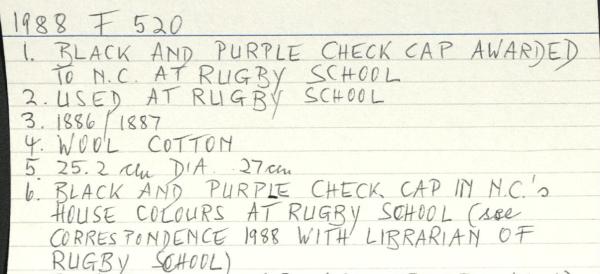 1988 F 520
1. BLACK AND PURPLE CHECK CAP AWARDED
TO N.C. AT RUGBY SCHOOL
2. USED AT RUGBY SCHOOL
3. 1886/1887
4. WOOL COTTON
5. 25.2 cm DIA. 27cm
6. BLACK AND PURPLE CHECK CAP IN N.C.'s
HOUSE COLOURS AT RUGBY SCHOOL (see
CORRESPONDENCE 1988 WITH LIBRARIAN OF
RUGBY SCHOOL)